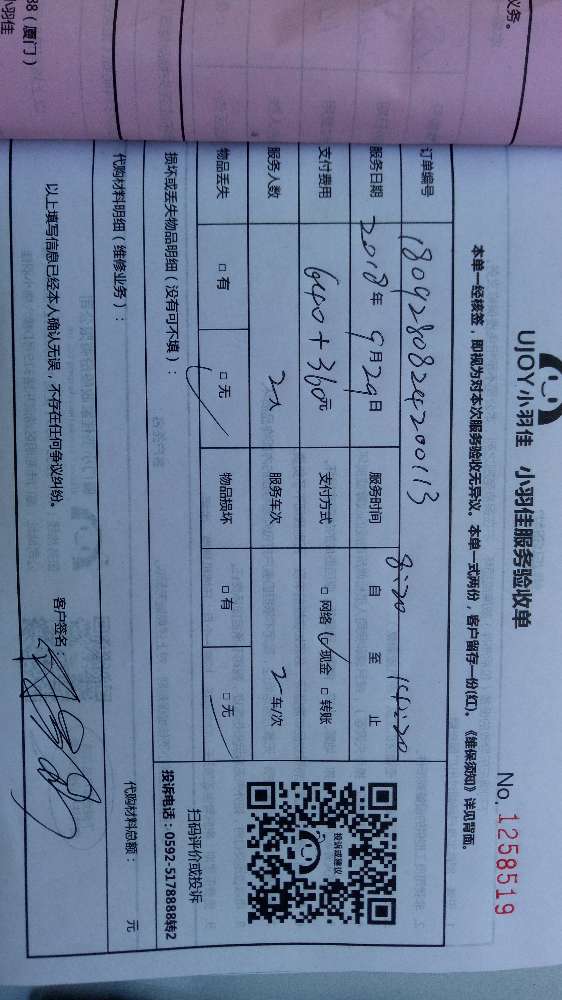 UJOY小羽佳 小羽佳服务验收单
No. 1258519
本单一经核签，即视为对本次服务验收无异议。本单一式两份，客户留存一份(红)。《维保须知》详见背面。
订单编号 1809280824200113
服务日期 2018年9月29日 服务时间 8:20 自 至 止
支付费用 640+360元 支付方式 □网络 □现金 □转账
服务人数 2人 服务车次 2车/次
物品丢失 □有 □无 物品损坏 □有 □无
投诉或建议
扫码评价或投诉
投诉电话：0592-5178888转2
损坏或丢失物品明细（没有可不填）：
代购材料明细（维修业务）：
代购材料总额： 元
以上填写信息已经本人确认无误，不存在任何争议纠纷。 客户签名：
义务。
88（厦门）
小羽佳